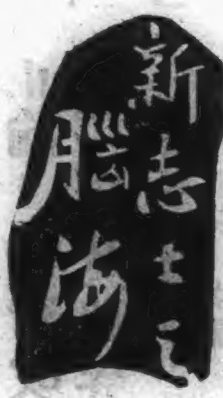 新志士之
腦海